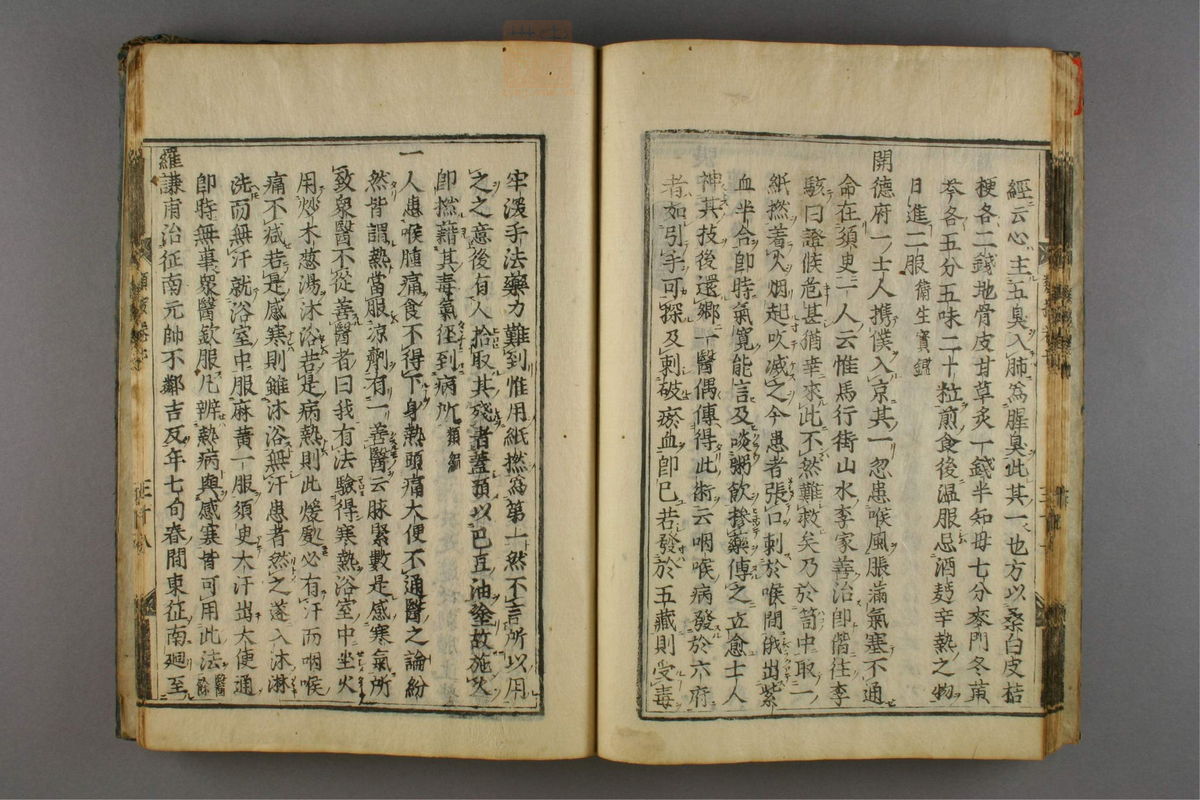 經云心主五臭入肺為腥臭此其一也方以桑白皮桔
梗各二錢地骨皮甘草炙一錢半知母七分麥門冬黃
芩各五分五味二十粒煎食後溫服忌酒麪辛熱之物
日進二服衛生寶鑑
開德府一士人携僕入京其一忽患喉風脹滿氣塞不通
命在須臾一人云惟馬行街山水李家善治卽偕往李
駭曰證候危甚猶幸來此不然難救矣乃於笥中取一
紙撚着火烟起吹滅之令患者張口刺於喉間俄出紫
血半合卽時氣寬能言及啖粥飲摻藥傅之立愈士人
神其技後還鄉一醫偶傳得此術云咽喉病發於六府
者如引手可探及刺破瘀血卽已若發於五藏則受毒
牢深手法藥力難到惟用紙撚為第一然不言所以用
之之意後有人拾取其殘者蓋預以巴豆油塗故施火
卽撚藉其毒氣徑到病所類編
一人患喉腫痛食不得下身熱頭痛大便不通醫之論紛
然皆謂熱當服涼劑有一善醫云脉緊數是感寒氣所
致衆醫不從善醫者曰我有法驗得寒熱浴室中坐火
用炒木葱湯沐浴若是病熱則此煖蒸必有汗而咽喉
痛不減若是感寒則雖沐浴無汗患者然之遂入沐淋
洗而無汗就浴室中服麻黃一服須臾大汗出大便通
卽時無事衆醫欽服凡辨熱病與感寒皆可用此法醫餘
羅謙甫治征南元帥不鄰吉歹年七旬春間東征南廻至